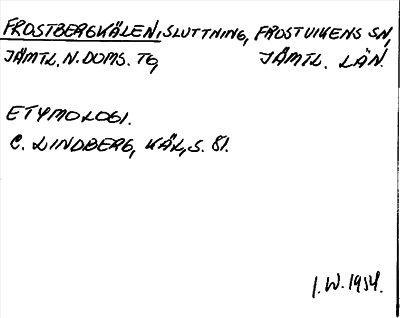 FROSTBERGKÄLEN, SLUTTNING, FROSTVIKENS SN,
JÄMTL. N. DOMS. TG, JÄMTL. LÄN.
ETYMOLOGI.
C. LINDBERG, KÄL, S. 81.
I. W. 1954.